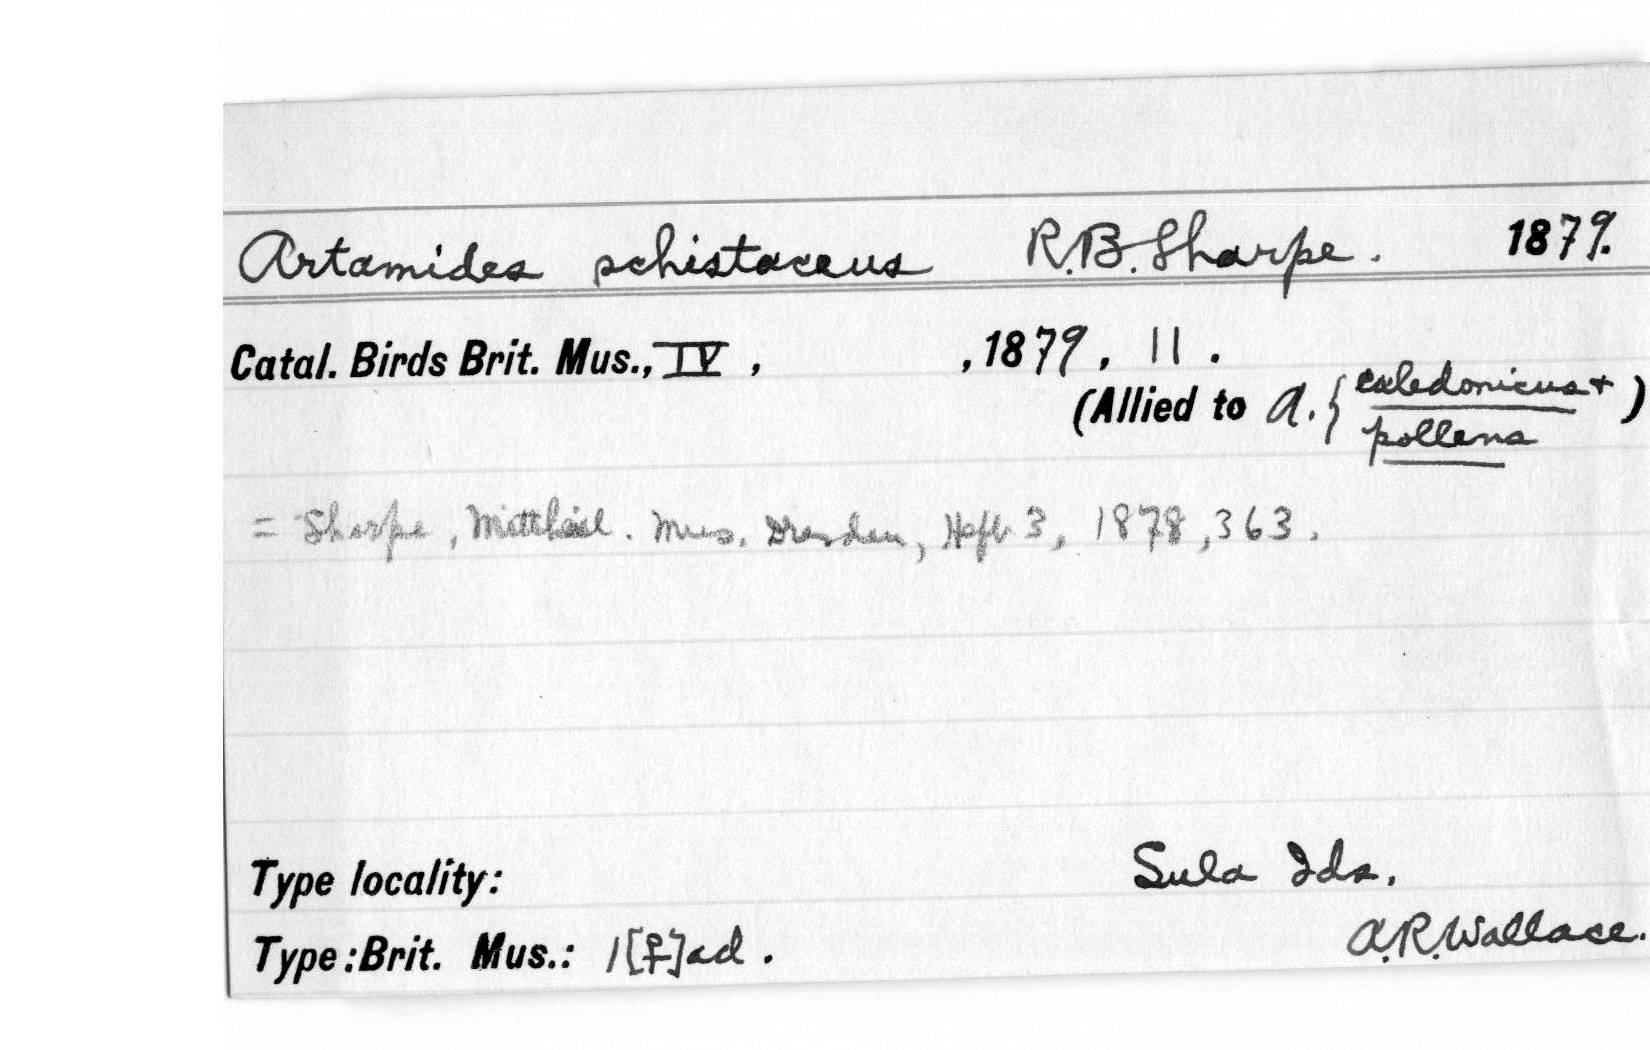 Artamides schistaceus R.B. Sharpe. 1879.
Catal. Birds Brit. Mus., IV, , 1879, 11.
(Allied to A. { caledonicus +
pollens )
= Sharpe, Mus. Dresden, Heft 3, 1878, 363.
Type locality: Sula Ids.
Type: Brit. Mus.: 1[♀]ad. A.R. Wallace.